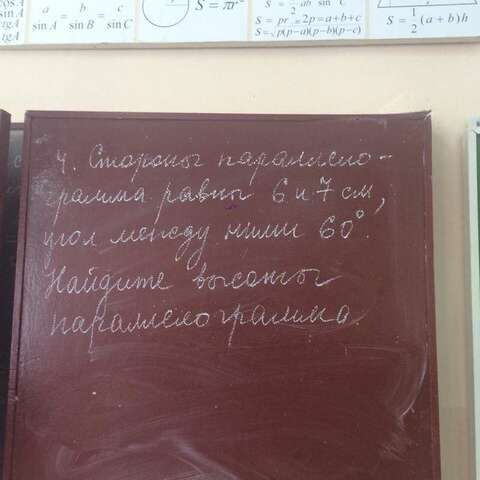 a/sin A = b/sin B = c/sin C
S = πr²
S = pr 2p = a+b+c
S = √p(p−a)(p−b)(p−c)
S = 1/2 (a+b)h
4. Стороны параллело-
грамма равны 6 и 7 см,
угол между ними 60°.
Найдите высоты
параллелограмма.